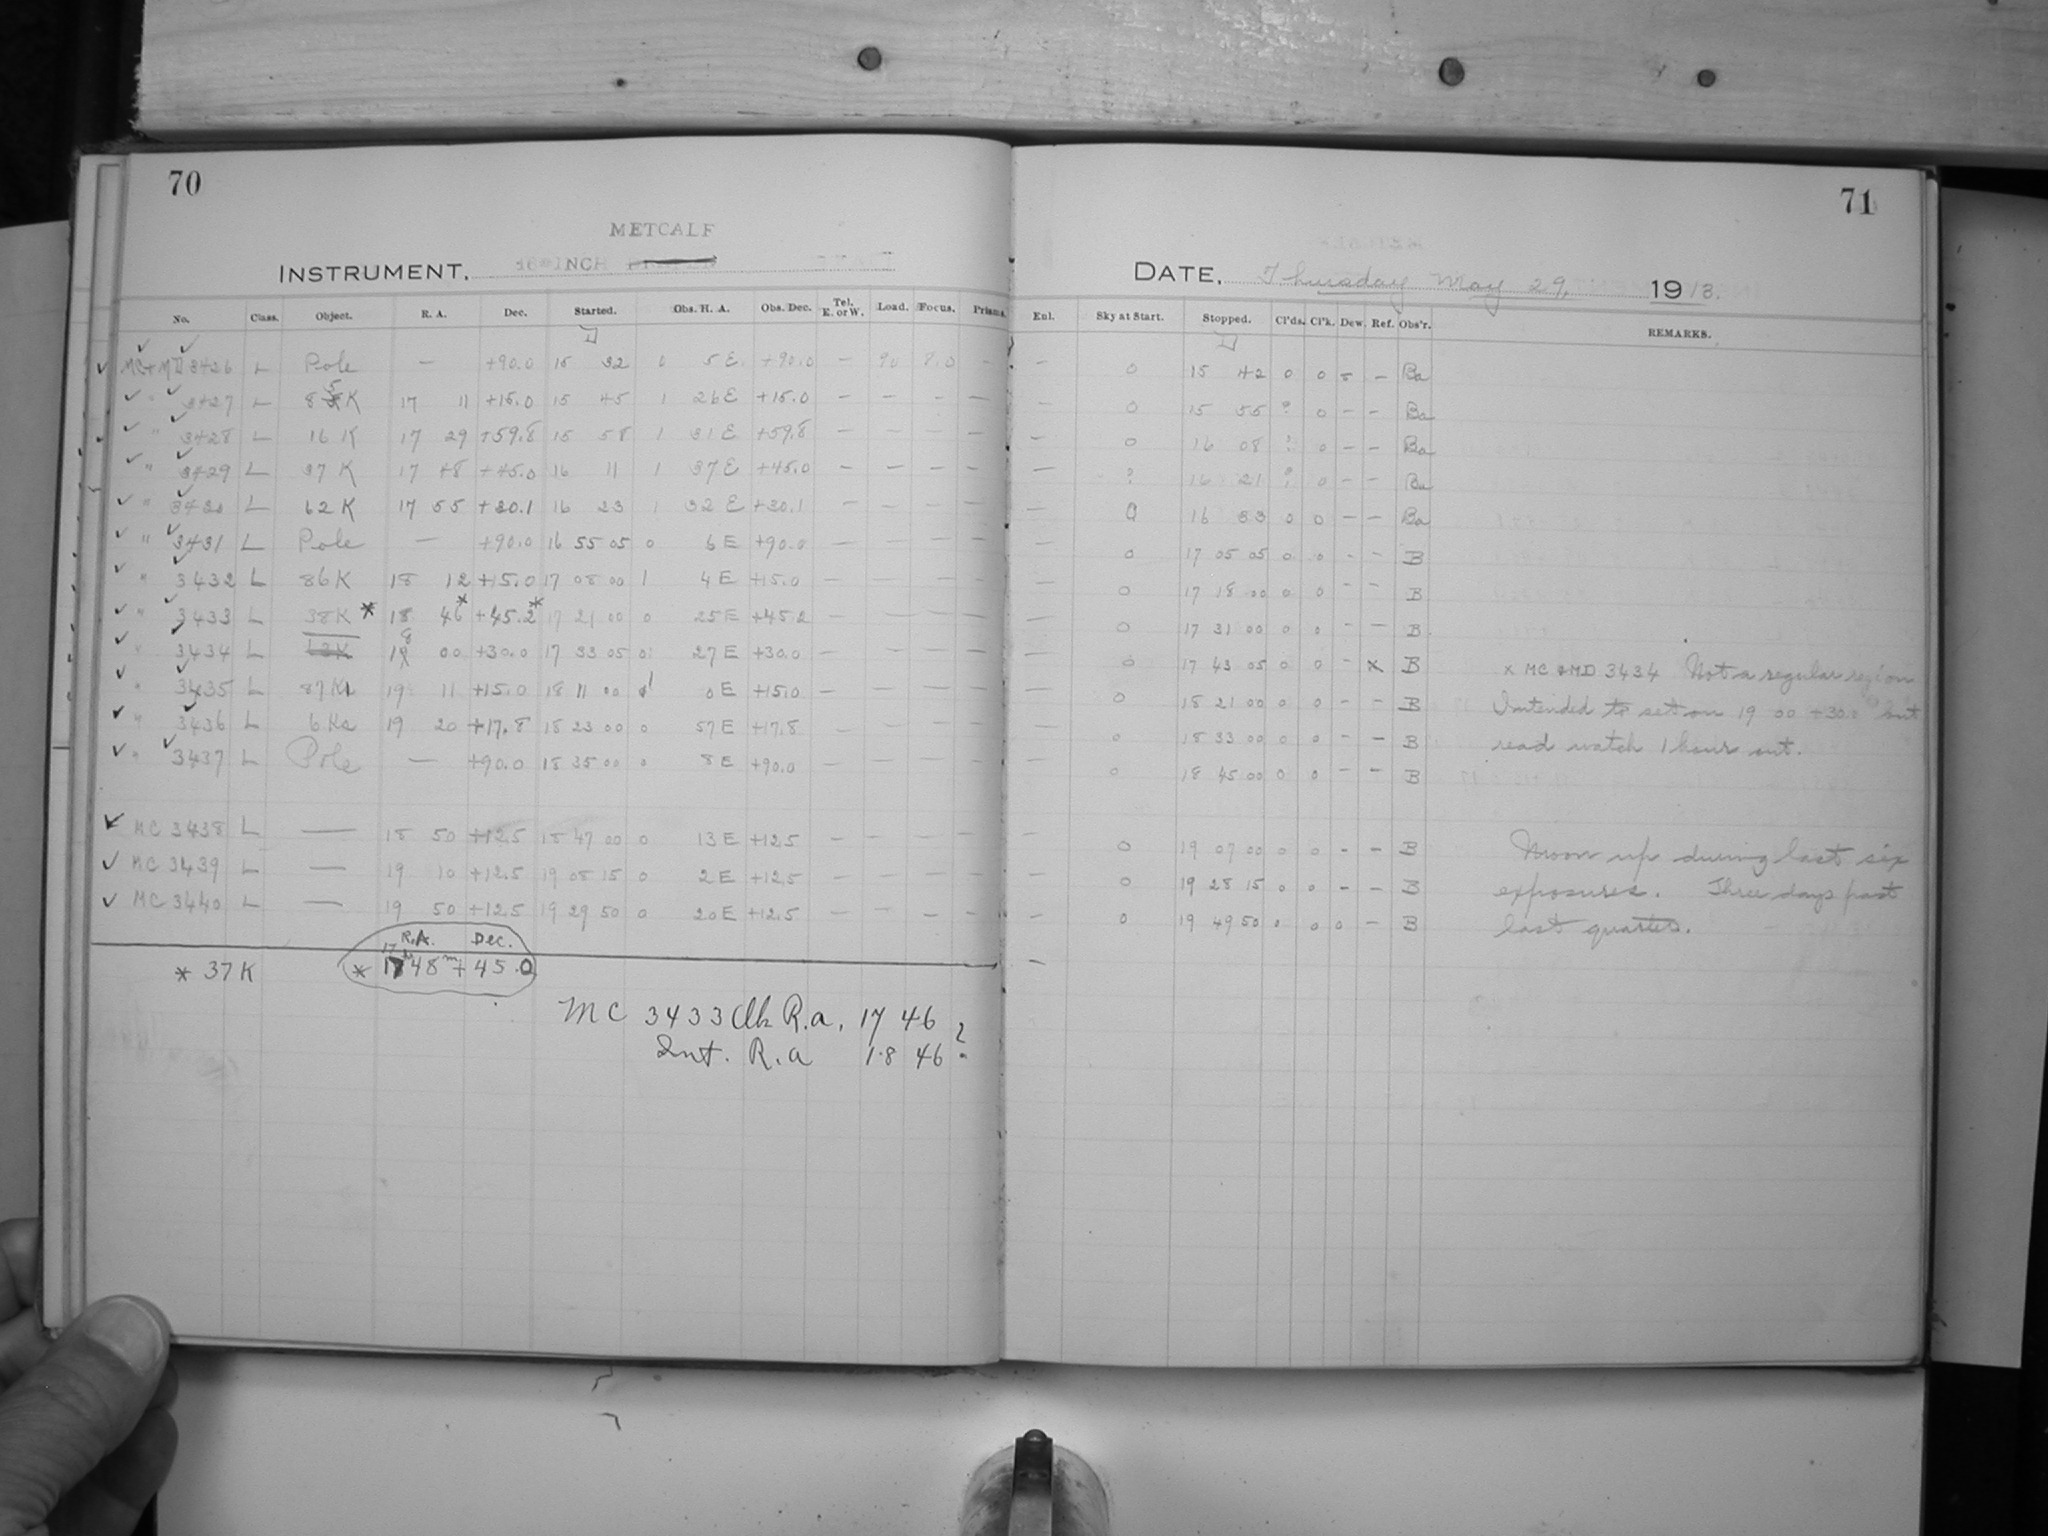 70
METCALF
INSTRUMENT, 16-INCH
No. Class. Object. R. A. Dec. Started. Obs. H. A. Obs. Dec. Tel. E. or W. Load. Focus. Prisms.
MC+MD 3426 L Pole — +90.0 15 32 0 5 E +90.0 — 90 8.0 —
" 3427 L 85K 17 11 +15.0 15 45 1 26 E +15.0 — — — —
" 3428 L 16 K 17 29 +59.8 15 58 1 31 E +59.8 — — — —
" 3429 L 37 K 17 48 +45.0 16 11 1 37 E +45.0 — — — —
" 3430 L 62 K 17 55 +30.1 16 23 1 32 E +30.1 — — — —
" 3431 L Pole — +90.0 16 55 05 0 6 E +90.0 — — — —
" 3432 L 86 K 18 12 +15.0 17 08 00 1 4 E +15.0 — — — —
" 3433 L 38 K * 18 46* +45.2* 17 21 00 0 25 E +45.2 — — — —
" 3434 L 63K 18 00 +30.0 17 33 05 0 27 E +30.0 — — — —
" 3435 L 87K 19 11 +15.0 18 11 00 1 0 E +15.0 — — — —
" 3436 L 6 Ka 19 20 +17.8 18 23 00 0 57 E +17.8 — — — —
" 3437 L Pole — +90.0 18 35 00 0 8 E +90.0 — — — —
MC 3438 L — 18 50 +12.5 18 47 00 0 13 E +12.5 — — — —
MC 3439 L — 19 10 +12.5 19 08 15 0 2 E +12.5 — — — —
MC 3440 L — 19 50 +12.5 19 29 50 0 20 E +12.5 — — — —
R.A. Dec.
* 37 K * 17 48m + 45.0
MC 3433 Clk R.a. 17 46
Int. R.a 18 46 ?
71
DATE, Thursday May 29, 1913.
Enl. Sky at Start. Stopped. Cl'ds. Cl'k. Dew. Ref. Obs'r. REMARKS.
— 0 15 42 0 0 s — Ba
— 0 15 55 ? 0 — — Ba
— 0 16 08 ? 0 — — Ba
— ? 16 21 ? 0 — — Ba
— 0 16 33 0 0 — — Ba
— 0 17 05 05 0 0 — — B
— 0 17 18 00 0 0 — — B
— 0 17 31 00 0 0 — — B
— 0 17 43 05 0 0 — x B x MC & MD 3434 Not a regular region
— 0 18 21 00 0 0 — — B Intended to set on 19 00 +30.0 but
— 0 18 33 00 0 0 — — B read watch 1 hour out.
— 0 18 45 00 0 0 — — B
— 0 19 07 00 0 0 — — B Moon up during last six
— 0 19 28 15 0 0 — — B exposures. Three days past
— 0 19 49 50 0 0 0 — B last quarter.
—